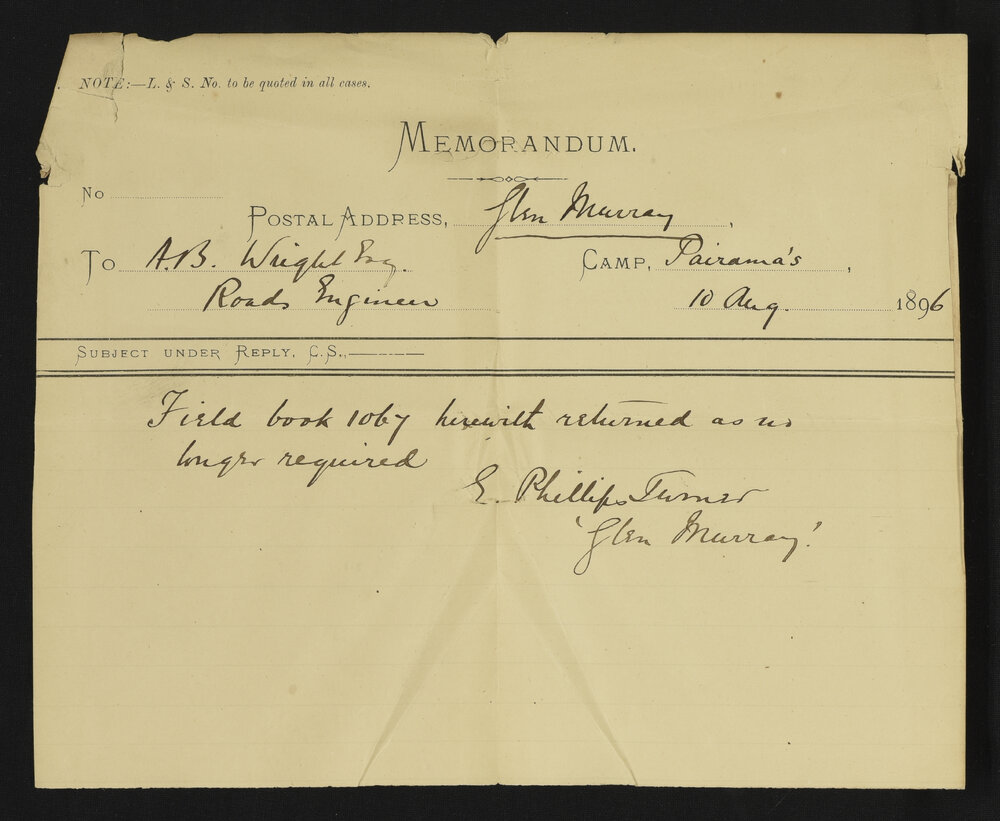 NOTE:—L. & S. No. to be quoted in all cases.
MEMORANDUM.
No
POSTAL ADDRESS, Glen Murray,
To A.B. Wright Esq. CAMP, Pairama's,
Roads Engineer 10 Aug. 1896
SUBJECT UNDER REPLY, C.S.,
Field book 1067 herewith returned as no
longer required
E. Phillips Turner
'Glen Murray'